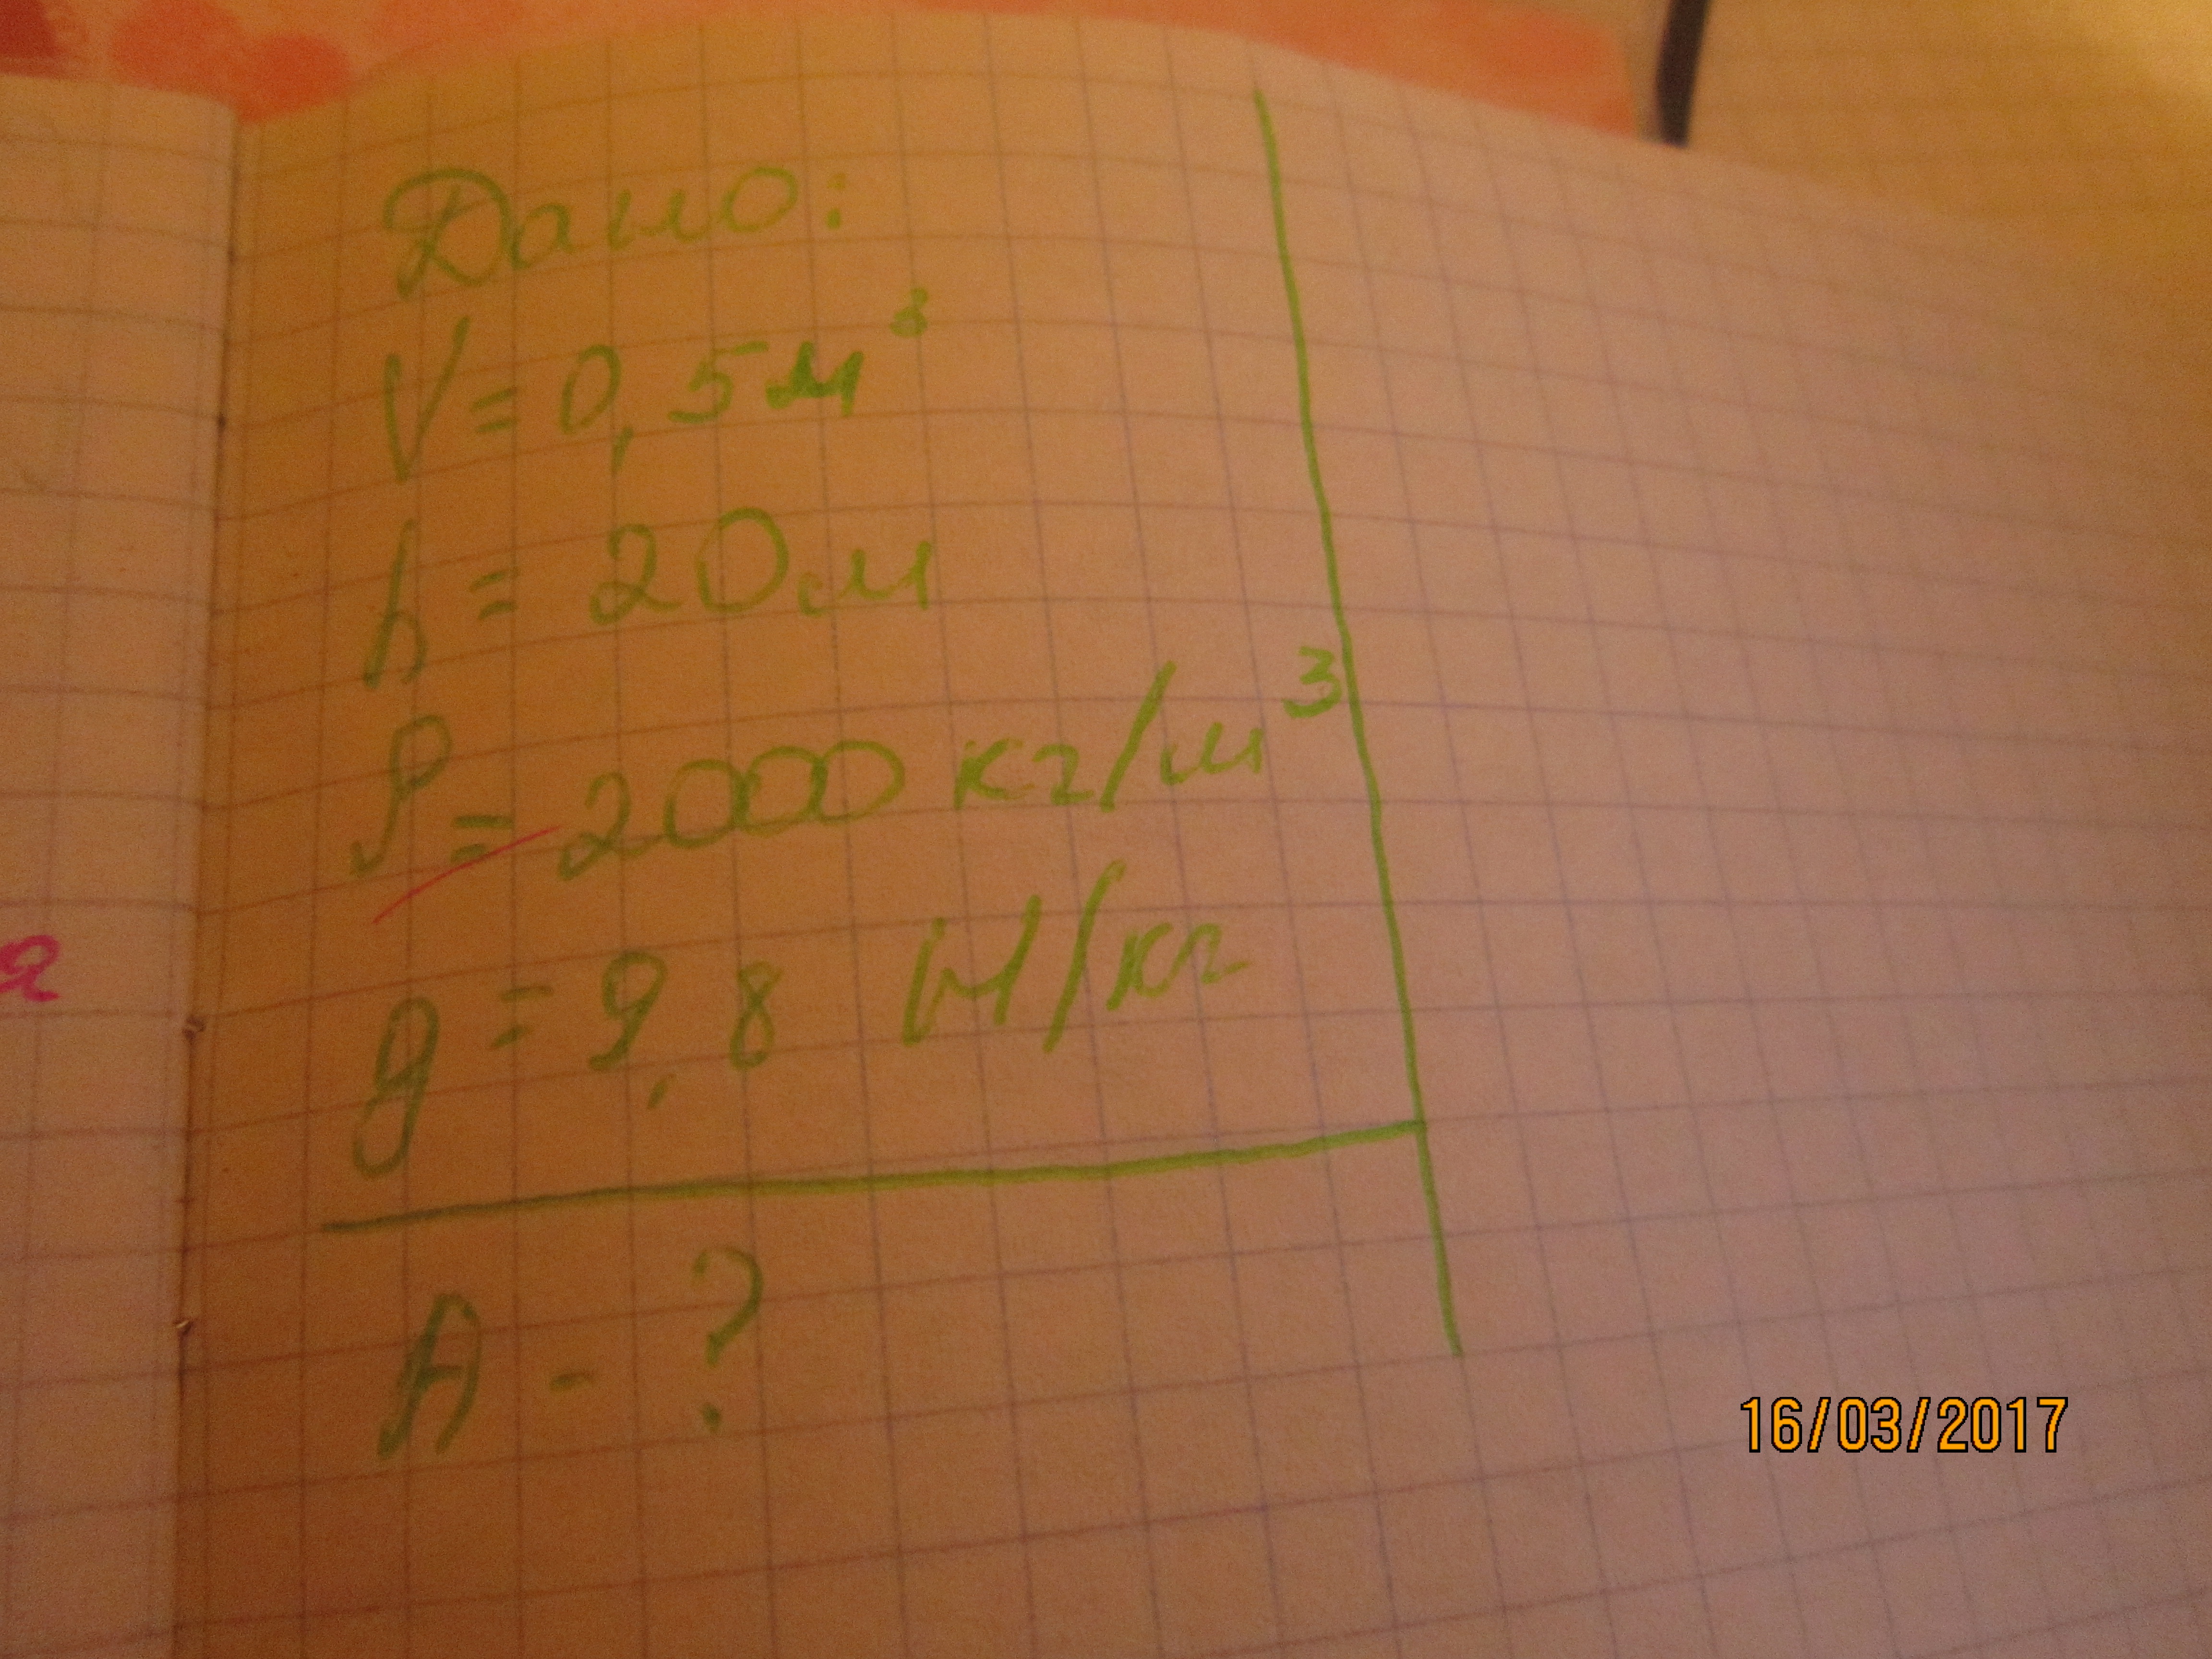 Дано:
V = 0,5 м³
h = 20 м
ρ = 2000 кг/м³
g = 9,8 Н/кг
A - ?
16/03/2017